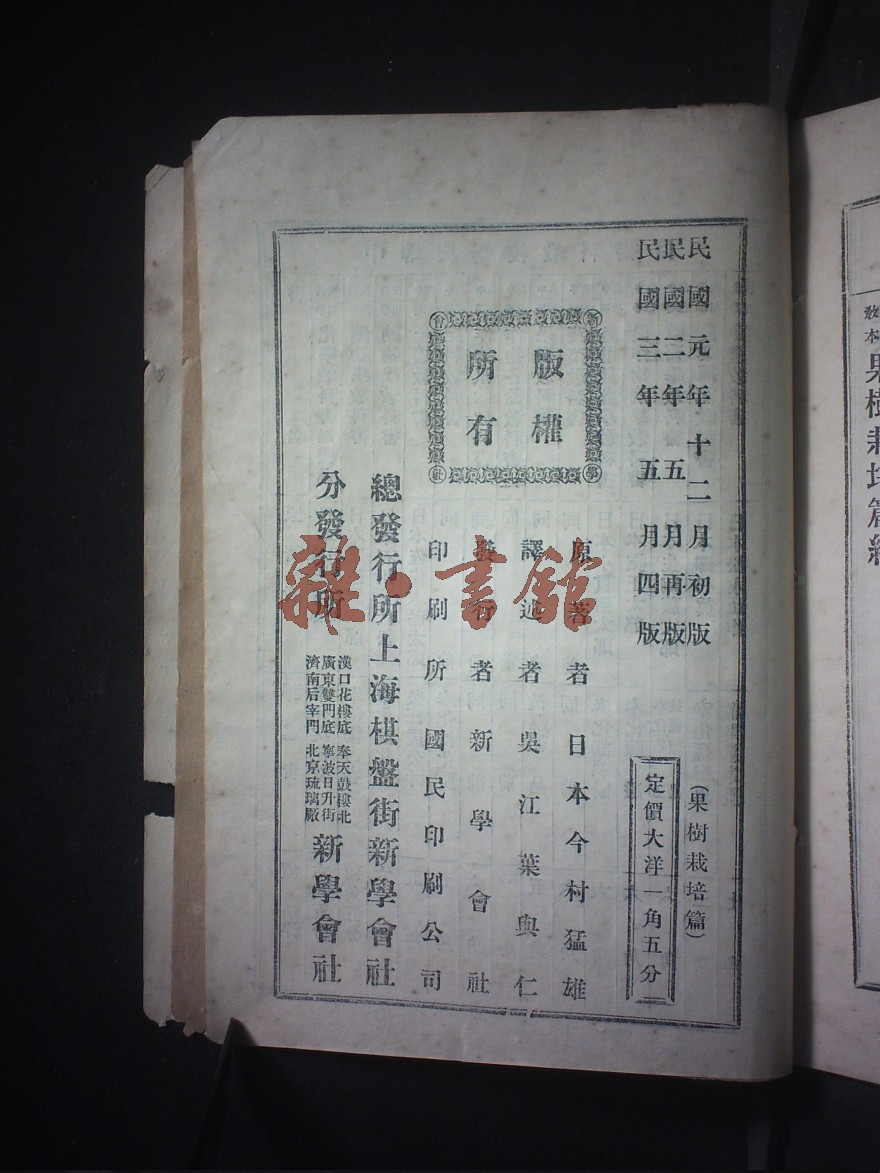 民國元年十二月初版
民國二年五月再版
民國三年五月四版
(果樹栽培篇)
定價大洋一角五分
版權
所有
新
學
會
社
原著者日本今村猛雄
譯述者吳江葉與仁
發行者新學會社
印刷所國民印刷公司
總發行所上海棋盤街新學會社
分發行所
漢口花樓底 奉天鼓樓北
廣東雙門底 寧波日升街
濟南后宰門 北京琉璃廠
新學會社
雜·書館
教
本
果樹栽培篇